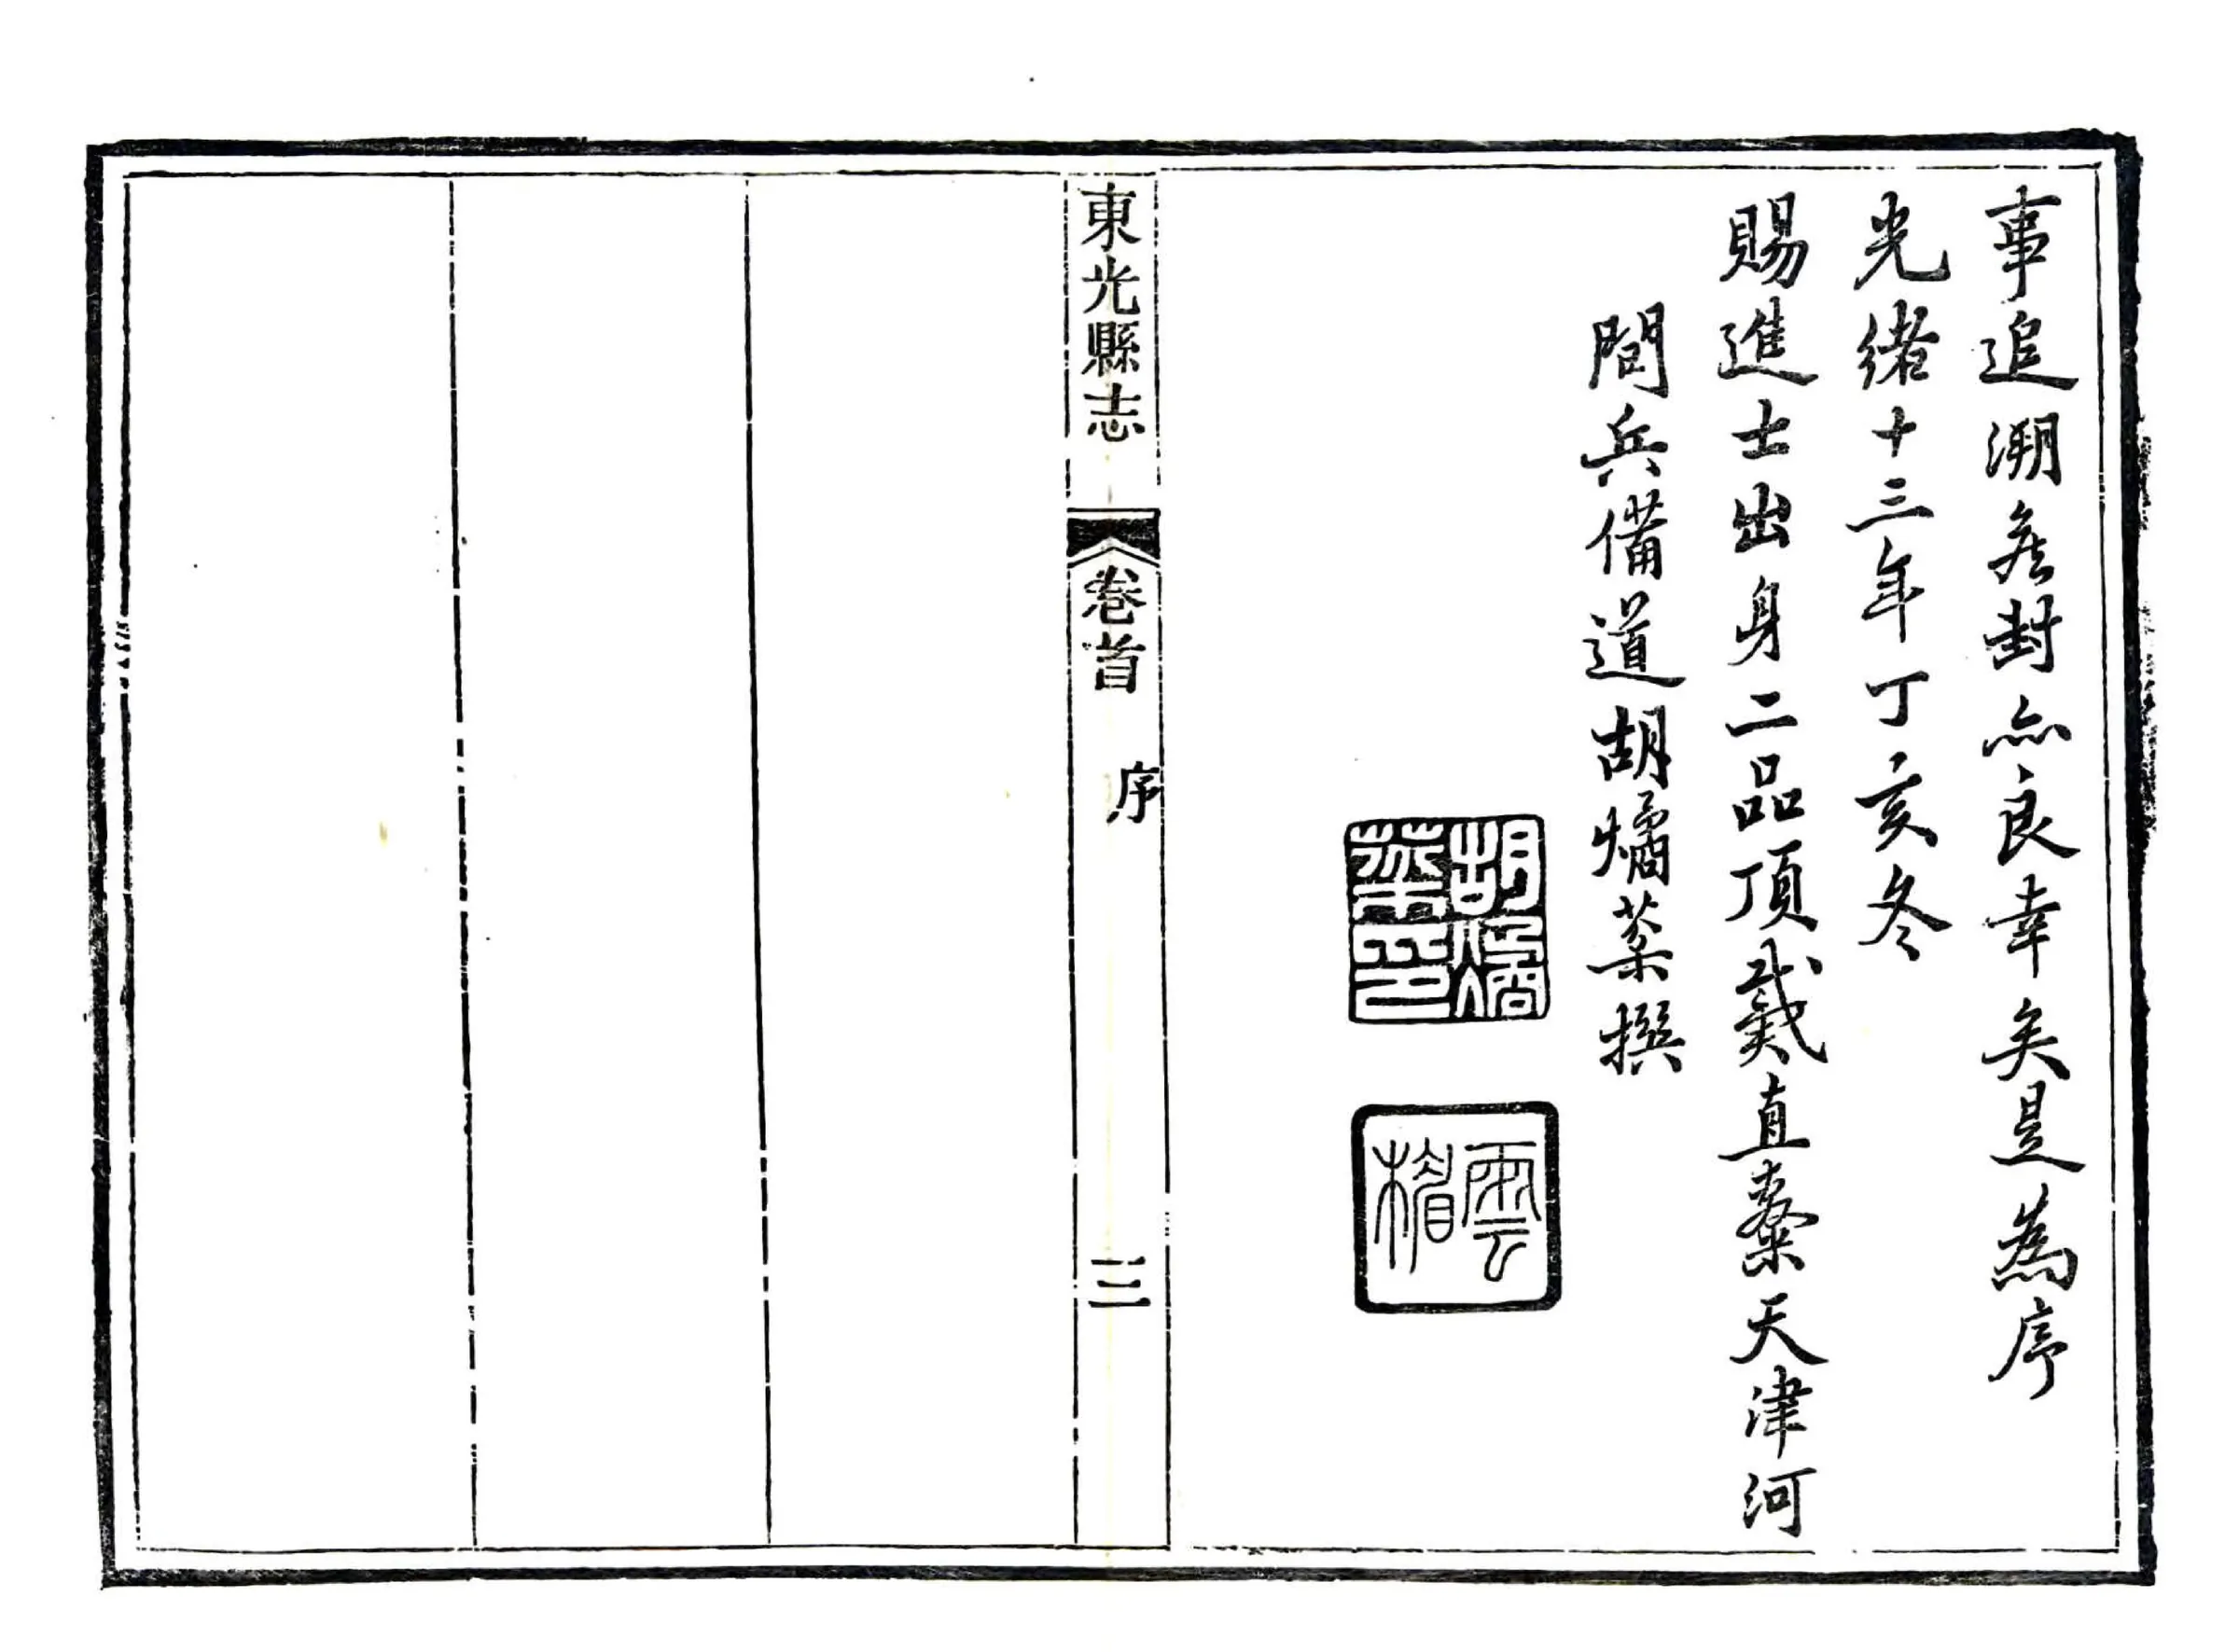 事追溯封亦良幸矣是為序
光緒十三年丁亥冬
賜進士出身二品頂戴直隸天津河
間兵備道胡燏棻撰
胡燏
棻印
雲楣
東光縣志 卷首 序 三